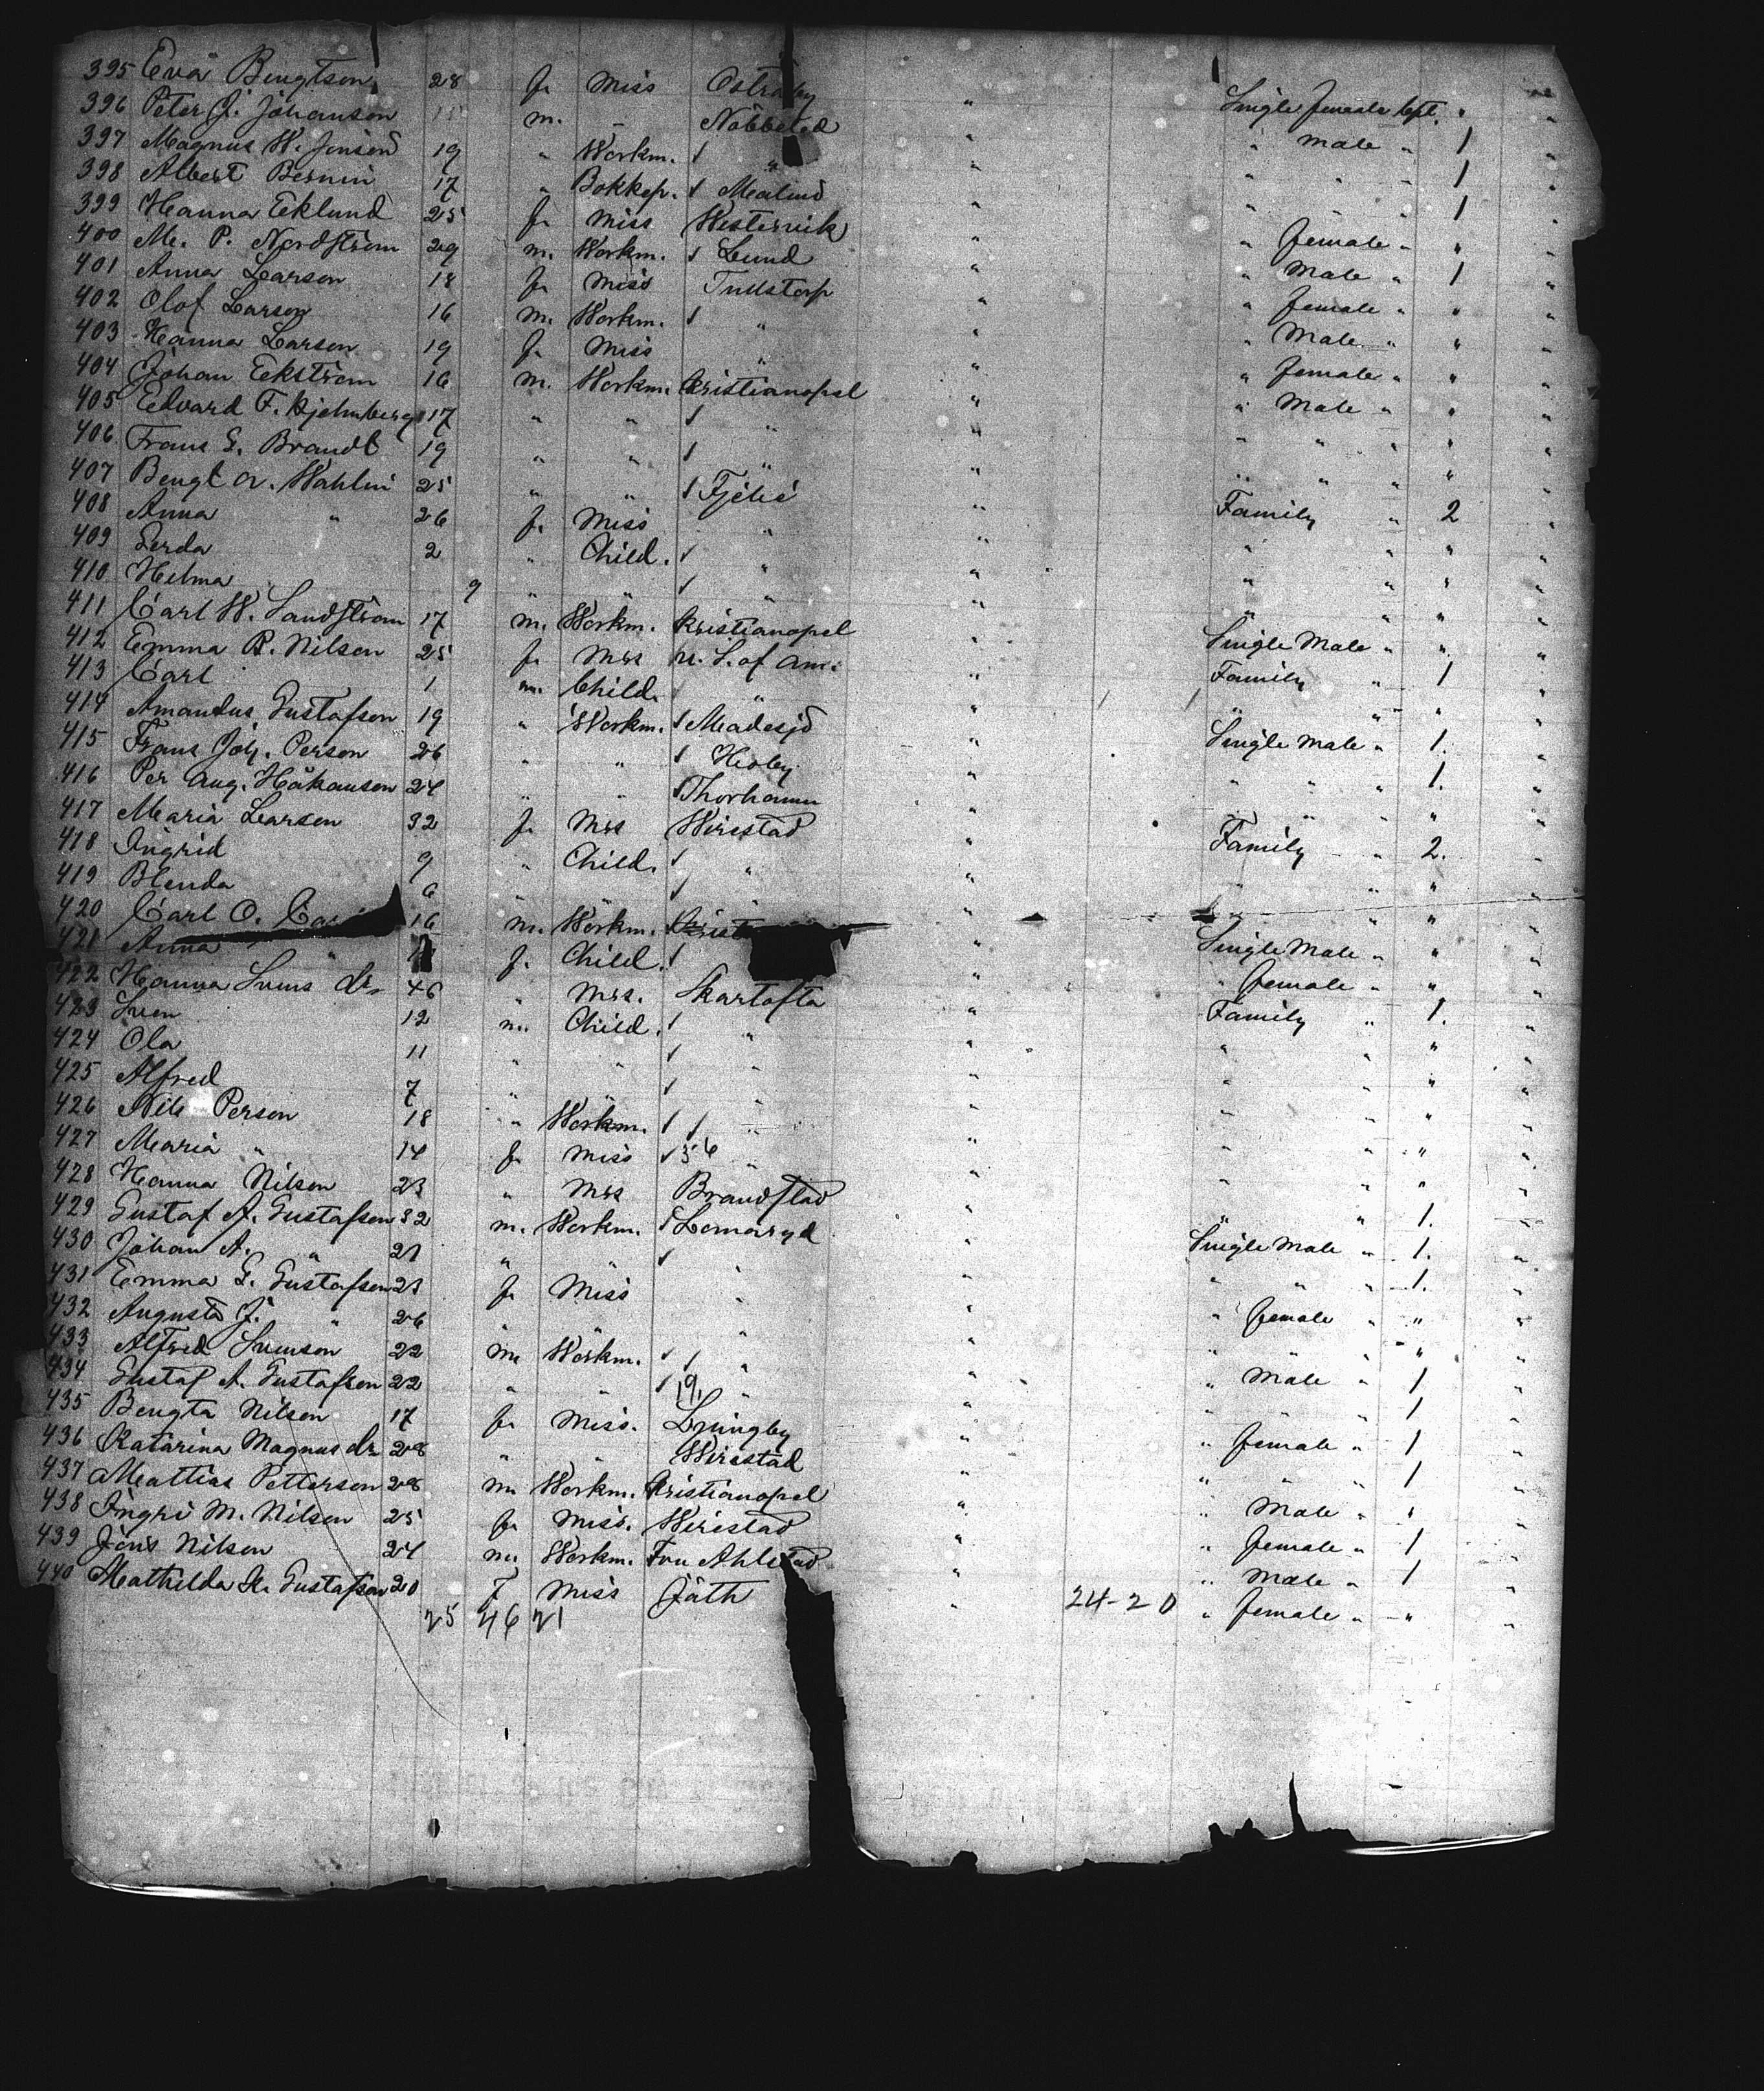 395 Eva Bengtson 28 f. Miss Ostraby " Single female cpt. " "
396 Peter J. Johanson m. " Nöbbeled " " Male " 1 "
397 Magnus W. Jonson 19 " Workm. " " " " " 1 "
398 Albert Bernin 17 " Bokkep. Malmö " " " " 1 "
399 Hanna Eklund 25 f. Miss Westervik " " female " " "
400 M. P. Nordström 29 m. Workm. Lund " " Male " 1 "
401 Anna Larson 18 f. Miss Tullstorp " " female " " "
402 Olof Larson 16 m. Workm. " " " Male " " "
403 Hanna Larson 19 f. Miss " " " female " " "
404 Johan Eekström 16 m. Workm. Kristianopel " " Male " " "
405 Edvard F. Kjelmberg 17 " " " " " " " " "
406 Frans G. Brandt 19 " " " " " " " " "
407 Bengt A. Wahlin 25 " " Fjelie " Family " 2 "
408 Anna " 26 f. Miss " " " " " "
409 Gerda 2 " Child. " " " " " "
410 Helma 9 " " " " " " " "
411 Carl W. Sandström 17 m. Workm. Kristianopel " Single Male " " "
412 Emma R. Nilson 25 f. Mrs U. S. of Am. " Family " 1 "
413 Carl 1 m. Child. " " " " " "
414 Amandus Gustafson 19 " Workm. Madesjö " Single Male " 1. "
415 Frans Joh. Person 26 " " " " " " 1. "
416 Per Aug. Håkanson 24 " " Thorhamn " " " " " "
417 Maria Larson 32 f. Mrs Wirestad " Family " 2. "
418 Ingrid 9 " Child. " " " " " "
419 Blenda 6 " " " " " " " "
420 Carl O. 16 m. Workm. " Single Male " " "
421 Anna " f. Child. " " female " " "
422 Hanna Svens dr. 46 " Mrs. Skartofta " Family " 1. "
423 Sven 12 m. Child. " " " " " "
424 Ola 11 " " " " " " " "
425 Alfred 7 " " " " " " " "
426 Nils Person 18 " Workm. " " " " " "
427 Maria " 14 f. Miss 56 " " " " " "
428 Hanna Nilson 23 " Mrs Brandstad " " " 1. "
429 Gustaf A. Gustafson 32 m. Workm. Lomaryd " Single Male " 1. "
430 Johan A. " 21 " " " " " " " 1. "
431 Emma G. Gustafson 23 f. Miss " " " female " " "
432 Augusta J. " 26 " " " " " " " " "
433 Alfred Svenson 22 m. Workm. " " " Male " 1 "
434 Gustaf A. Gustafson 22 " " 19, " " " " " 1 "
435 Bengta Nilson 17 f. Miss. Ljungby " " female " 1 "
436 Katarina Magnus dr. 28 " " Wirestad " " " " 1 "
437 Mattias Petterson 28 m. Workm. Kristianopel " " Male " " "
438 Ingri M. Nilson 25 f. Miss. Wirestad " " female " 1 "
439 Jöns Nilson 24 m. Workm. Ahlstad " " Male " 1 "
440 Mathilda K. Gustafson 20 f Miss Jäth " 24-20 " female " " "
25 46 21